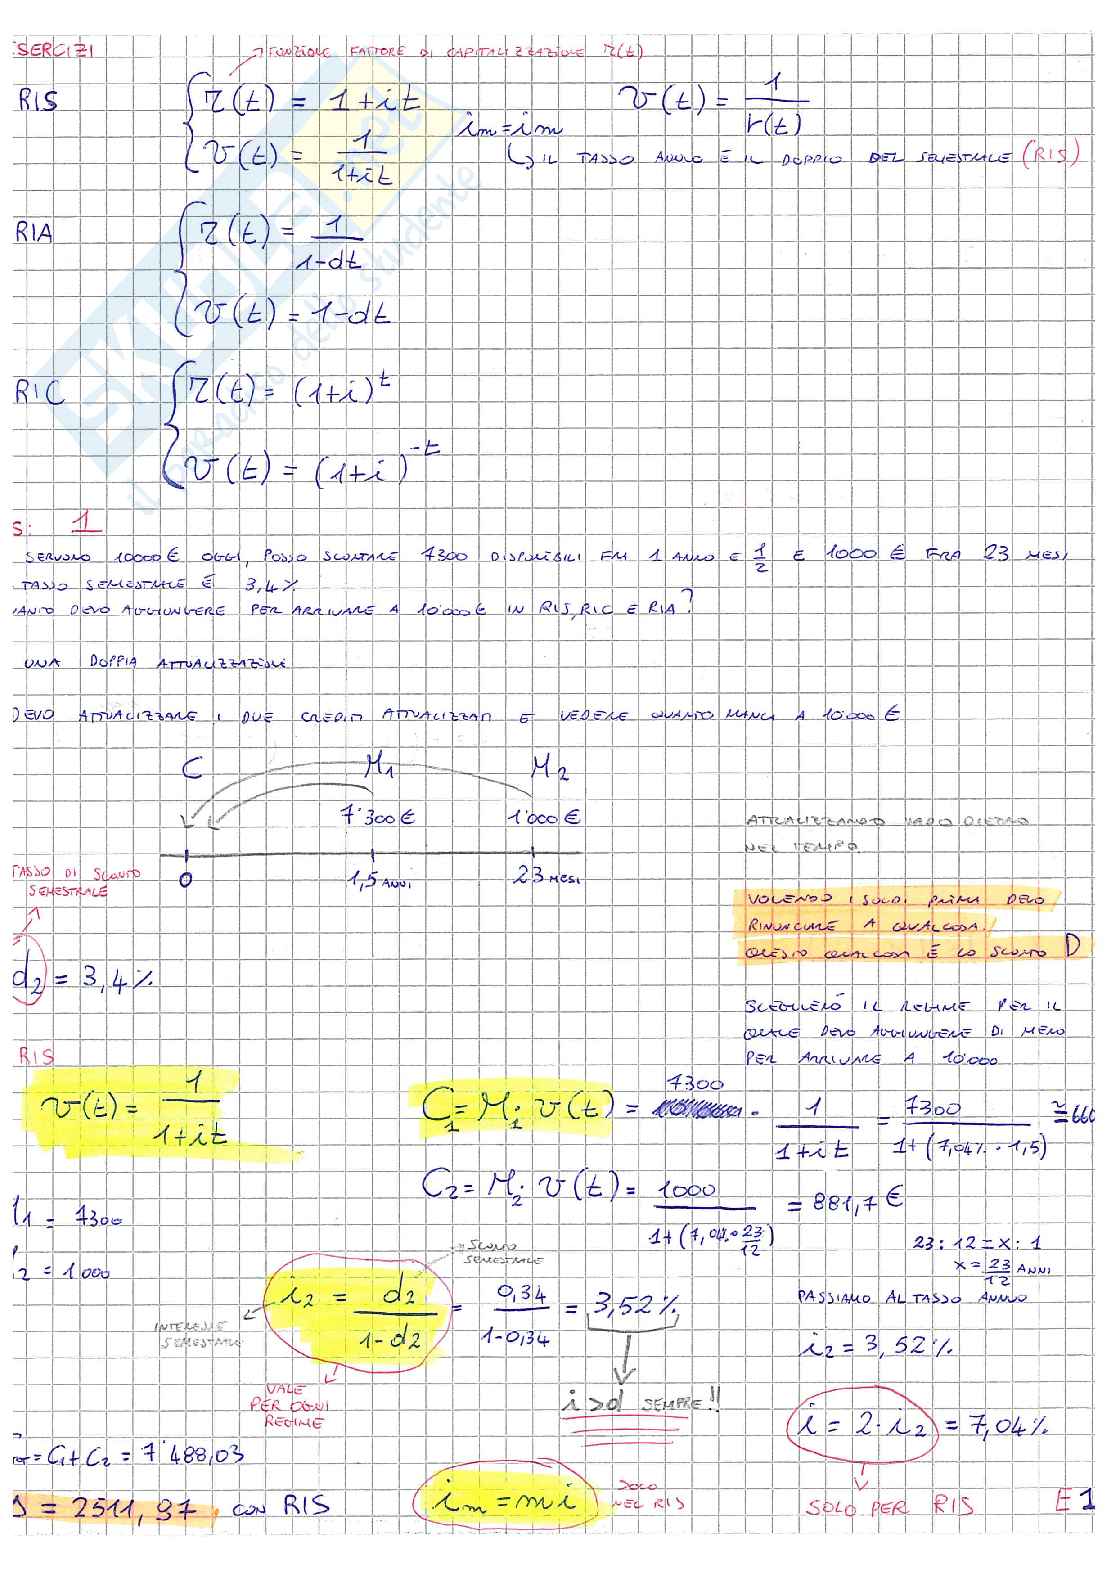 SERCIZI
FUNZIONE FATTORE DI CAPITALIZZAZIONE r(t)
RIS
r(t) = 1+it
v(t) = 1/(1+it)
i_m = i m
v(t) = 1/r(t)
IL TASSO ANNUO È IL DOPPIO DEL SEMESTRALE (RIS)
RIA
r(t) = 1/(1-dt)
v(t) = 1-dt
RIC
r(t) = (1+i)^t
v(t) = (1+i)^-t
S: 1
SERVONO 10000€ OGGI, POSSO SCONTARE 7300 DISPONIBILI FRA 1 ANNO E 1/2 E 1000€ FRA 23 MESI
TASSO SEMESTRALE È 3,4%
ANTO DEVO AGGIUNGERE PER ARRIVARE A 10'000€ IN RIS, RIC E RIA?
UNA DOPPIA ATTUALIZZAZIONE
DEVO ATTUALIZZARE I DUE CREDITI ATTUALIZZATI E VEDERE QUANTO MANCA A 10'000€
C M1 M2
7'300€ 1'000€
0 1,5 ANNI 23 MESI
ATTUALIZZANDO VADO DIETRO
NEL TEMPO
TASSO DI SCONTO
SEMESTRALE
VOLENDO I SOLDI PRIMA DEVO
RINUNCIARE A QUALCOSA.
QUESTO QUALCOSA È LO SCONTO D
d2 = 3,4%
SCEGLIERÒ IL REGIME PER IL
QUALE DEVO AGGIUNGERE DI MENO
PER ARRIVARE A 10'000
RIS
v(t) = 1/(1+it)
C1 = M1 · v(t) = 7300 · 1/(1+it) = 7300/(1+(7,04% · 1,5)) ≅ 660
C2 = M2 · v(t) = 1000/(1+(7,04 · 23/12)) = 881,7€
1 = 7300
2 = 1000
23 : 12 = x : 1
x = 23/12 ANNI
SCONTO
SEMESTRALE
i2 = d2/(1-d2) = 0,34/(1-0,34) = 3,52%
INTERESSE
SEMESTRALE
PASSIAMO AL TASSO ANNUO
i2 = 3,52%
VALE
PER OGNI
REGIME
i>d SEMPRE!!
i = 2 · i2 = 7,04%
= C1 + C2 = 7'488,03
= 2511,97 CON RIS
i_m = m i
SOLO
NEL RIS
SOLO PER RIS
E1
SKUOLA.net
il paradiso dello studente